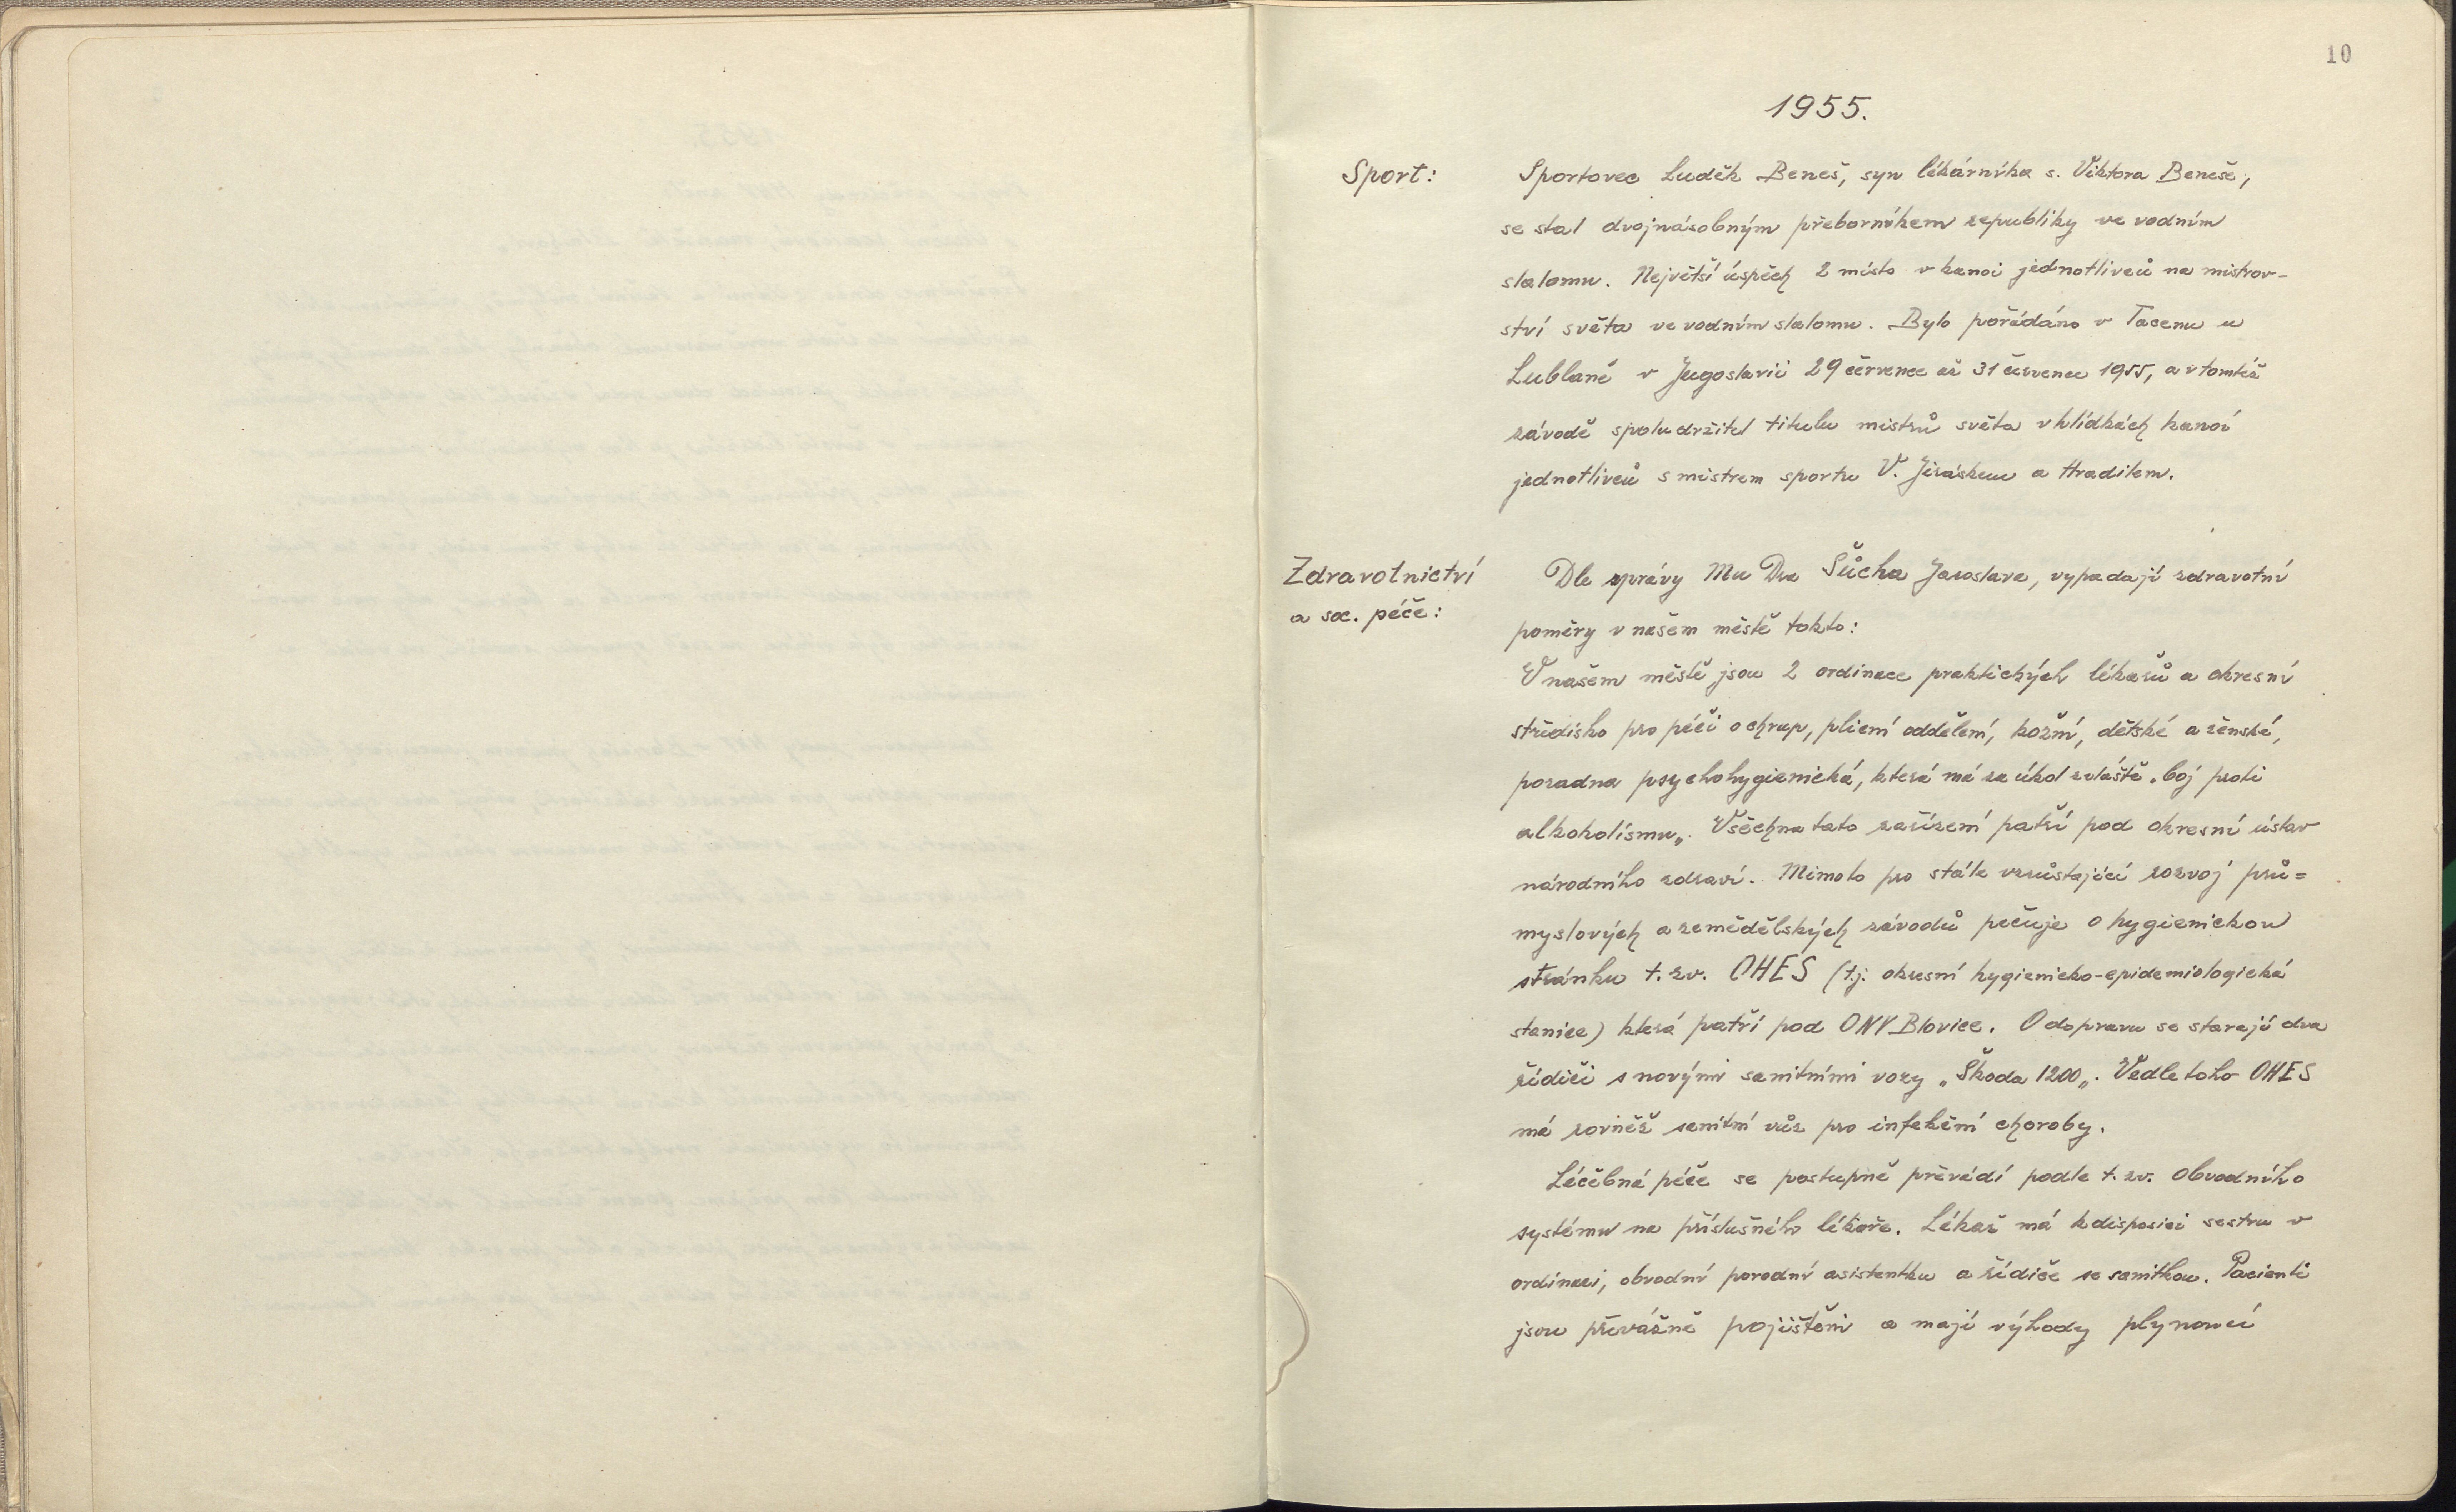 10
1955.
Sport:
Sportovec Luděk Beneš, syn lékárníka s. Viktora Beneše,
se stal dvojnásobným přeborníkem republiky ve vodním
slalomu. Největší úspěch 2 místo v kanoi jednotlivců na mistrov-
ství světa ve vodním slalomu. Bylo pořádáno v Tacenu u
Lublaně v Jugoslavii 29 července až 31 července 1955, a v tomtéž
závodě spoludržitel titulu mistrů světa v hlídkách kanoí
jednotlivců s mistrem sportu V. Jiráskem a Hradilem.
Zdravotnictví
a soc. péče:
Dle zprávy Mu Dra Šůcha Jaroslava, vypadají zdravotní
poměry v našem městě takto:
V našem městě jsou 2 ordinace praktických lékařů a okresní
středisko pro péči o chrup, plicní oddělení, kožní, dětské a ženské,
poradna psychohygienická, která má za úkol zvláště „boj proti
alkoholismu„. Všechna tato zařízení patří pod okresní ústav
národního zdraví. Mimoto pro stále vzrůstající rozvoj prů=
myslových a zemědělských závodů pečuje o hygienickou
stránku t. zv. OHES (t.j. okresní hygienicko-epidemiologická
stanice) která patří pod ONV Blovice. O dopravu se starají dva
řidiči s novými sanitními vozy „Škoda 1200„. Vedle toho OHES
má rovněž sanitní vůz pro infekční choroby.
Léčebná péče se postupně převádí podle t. zv. obvodního
systému na příslušného lékaře. Lékař má k disposici sestru v
ordinaci, obvodní porodní asistentku a řidiče se sanitkou. Pacienti
jsou převážně pojištěni a mají výhody plynoucí